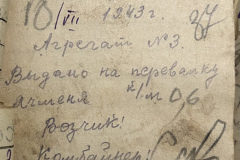 18/VII 1943г. 37
Агрегат №3.
Выдано на перевалку
ячменя 0,6
Возчик!
Комбайнер!